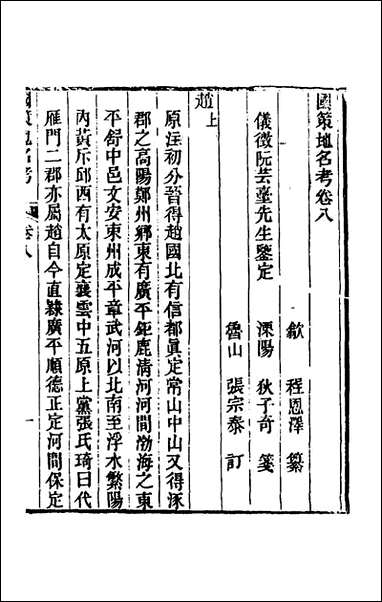 國策地名考卷八
歙　程恩澤　纂
儀徵阮芸臺先生鑒定　溧陽　狄子奇　箋
魯山　張宗泰　訂
趙上
原注初分晉得趙國北有信都眞定常山中山又得涿
郡之高陽鄚州鄉東有廣平鉅鹿清河河間渤海之東
平舒中邑文安束州成平章武河以北南至浮水繁陽
內黃斥邱西有太原定襄雲中五原上黨張氏琦曰代
雁門二郡亦屬趙自今直隸廣平順德正定河間保定
國策地名考　卷八　一